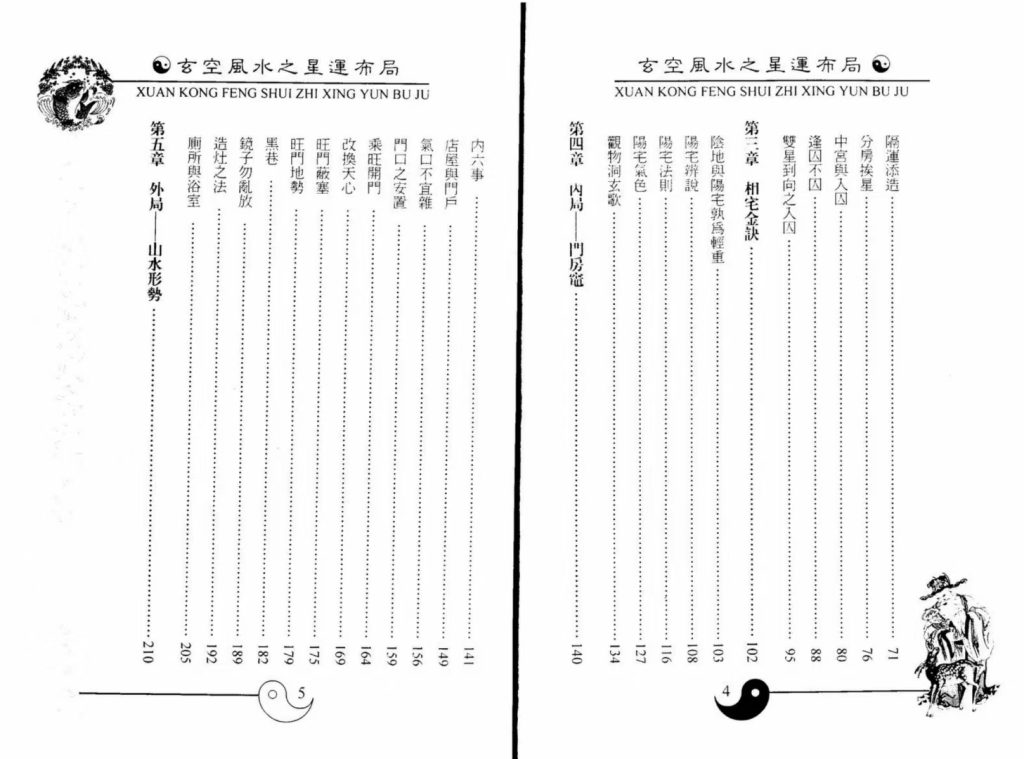 玄空風水之星運布局
XUAN KONG FENG SHUI ZHI XING YUN BU JU
隔運添造 71
分房挨星 76
中宮與入囚 80
逢囚不囚 88
雙星到向之入囚 95
第三章 相宅金訣 102
陰地與陽宅孰爲輕重 103
陽宅辨說 108
陽宅法則 116
陽宅氣色 127
觀物洞玄歌 134
第四章 內局——門房竈 140
4
玄空風水之星運布局
XUAN KONG FENG SHUI ZHI XING YUN BU JU
内六事 141
店屋與門戶 149
氣口不宜雜 156
門口之安置 159
乘旺開門 164
改換天心 169
旺門蔽塞 175
旺門地勢 179
黑巷 182
鏡子勿亂放 189
造灶之法 192
廁所與浴室 205
第五章 外局——山水形勢 210
5